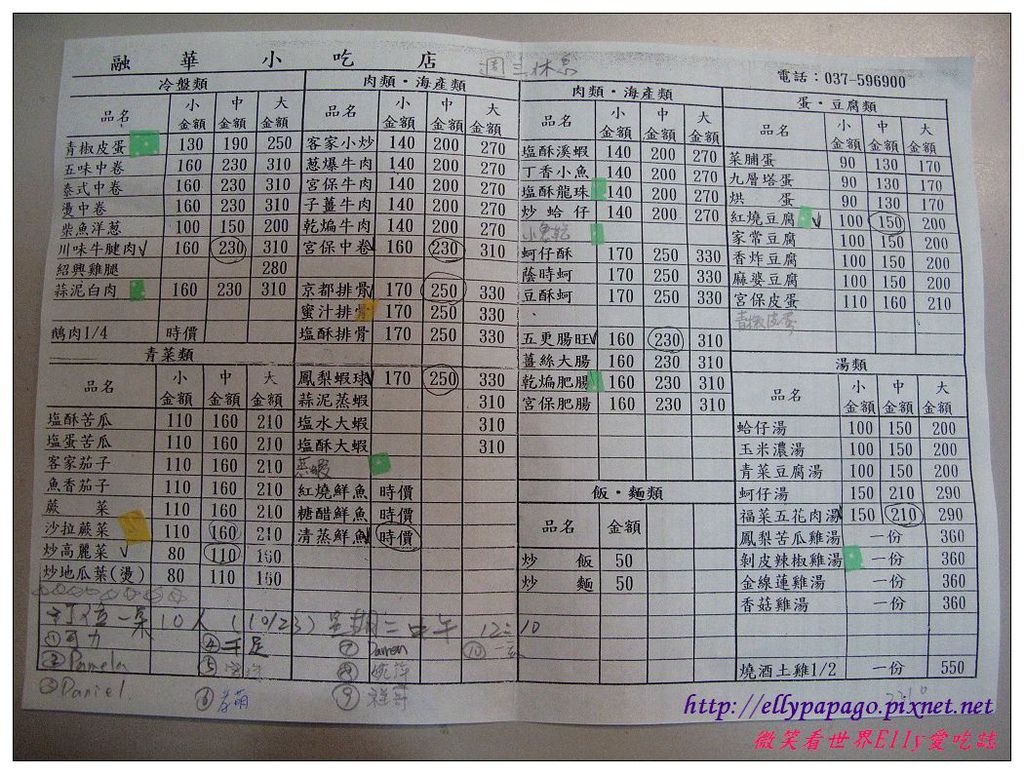 融華小吃店
週三休息
電話：037-596900
冷盤類
品名 小金額 中金額 大金額
青椒皮蛋 130 190 250
五味中卷 160 230 310
泰式中卷 160 230 310
燙中卷 160 230 310
柴魚洋蔥 100 150 200
川味牛腱肉 160 230 310
紹興雞腿 280
蒜泥白肉 160 230 310
鵝肉1/4 時價
青菜類
品名 小金額 中金額 大金額
塩酥苦瓜 110 160 210
塩蛋苦瓜 110 160 210
客家茄子 110 160 210
魚香茄子 110 160 210
蕨菜 110 160 210
沙拉蕨菜 110 160 210
炒高麗菜 80 110 160
炒地瓜葉(燙) 80 110 160
肉類・海產類
品名 小金額 中金額 大金額
客家小炒 140 200 270
蔥爆牛肉 140 200 270
宮保牛肉 140 200 270
子薑牛肉 140 200 270
乾煸牛肉 140 200 270
宮保中卷 160 230 310
京都排骨 170 250 330
蜜汁排骨 170 250 330
塩酥排骨 170 250 330
鳳梨蝦球 170 250 330
蒜泥蒸蝦 310
塩水大蝦 310
塩酥大蝦 310
蒸蝦
紅燒鮮魚 時價
糖醋鮮魚 時價
清蒸鮮魚 時價
肉類・海產類
品名 小金額 中金額 大金額
塩酥溪蝦 140 200 270
丁香小魚 140 200 270
塩酥龍珠 140 200 270
炒蛤仔 140 200 270
蚵仔酥 170 250 330
蔭時蚵 170 250 330
豆酥蚵 170 250 330
五更腸旺 160 230 310
薑絲大腸 160 230 310
乾煸肥腸 160 230 310
宮保肥腸 160 230 310
飯・麵類
品名 金額
炒飯 50
炒麵 50
蛋・豆腐類
品名 小金額 中金額 大金額
菜脯蛋 90 130 170
九層塔蛋 90 130 170
烘蛋 90 130 170
紅燒豆腐 100 150 200
家常豆腐 100 150 200
香炸豆腐 100 150 200
麻婆豆腐 100 150 200
宮保皮蛋 110 160 210
青椒皮蛋
湯類
品名 小金額 中金額 大金額
蛤仔湯 100 150 200
玉米濃湯 100 150 200
青菜豆腐湯 100 150 200
蚵仔湯 150 210 290
福菜五花肉湯 150 210 290
鳳梨苦瓜雞湯 一份 360
剝皮辣椒雞湯 一份 360
金線蓮雞湯 一份 360
香菇雞湯 一份 360
燒酒土雞1/2 一份 550
訂位一桌10人 (10/23) 星期二中午 12:10
①可力
②Pamela
③Daniel
④千足
⑦Damon
http://ellypapago.pixnet.net
微笑看世界Elly愛吃誌